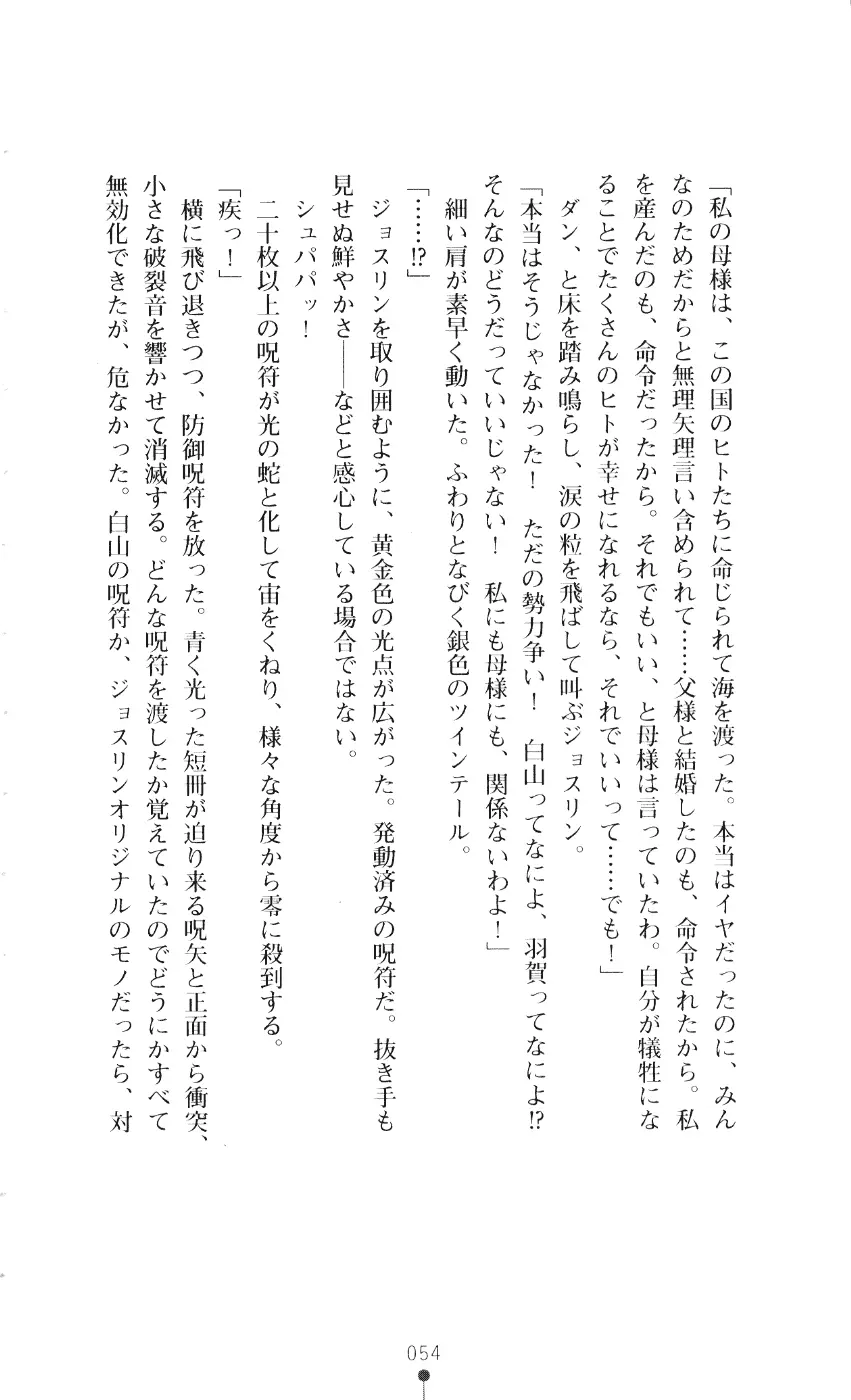 「私の母様は、この国のヒトたちに命じられて海を渡った。本当はイヤだったのに、みん
なのためだからと無理矢理言い含められて……父様と結婚したのも、命令されたから。私
を産んだのも、命令だったから。それでもいい、と母様は言っていたわ。自分が犠牲にな
ることでたくさんのヒトが幸せになれるなら、それでいいって……でも！」
ダン、と床を踏み鳴らし、涙の粒を飛ばして叫ぶジョスリン。
「本当はそうじゃなかった！　ただの勢力争い！　白山ってなによ、羽賀ってなによ!?
そんなのどうだっていいじゃない！　私にも母様にも、関係ないわよ！」
細い肩が素早く動いた。ふわりとなびく銀色のツインテール。
「……!?」
ジョスリンを取り囲むように、黄金色の光点が広がった。発動済みの呪符だ。抜き手も
見せぬ鮮やかさ――などと感心している場合ではない。
シュパパッ！
二十枚以上の呪符が光の蛇と化して宙をくねり、様々な角度から零に殺到する。
「疾っ！」
横に飛び退きつつ、防御呪符を放った。青く光った短冊が迫り来る呪矢と正面から衝突、
小さな破裂音を響かせて消滅する。どんな呪符を渡したか覚えていたのでどうにかすべて
無効化できたが、危なかった。白山の呪符か、ジョスリンオリジナルのモノだったら、対
054